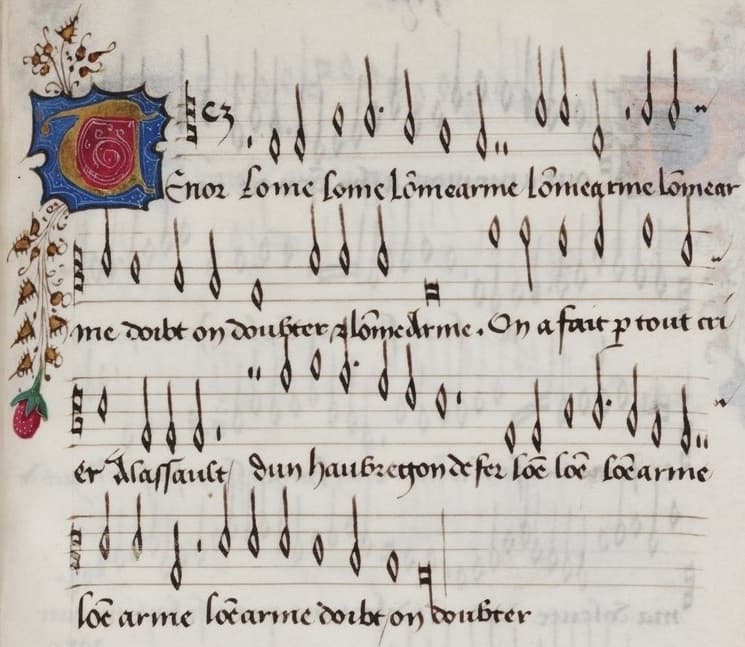 TEnor Lome lome lõmearme lõmearme lõmear
me doibt on doubter lõmearme. On a fait p tout cri
er A lassault / dun haubregon de fer lõe lõe lõe arme
lõe arme lõe arme doibt / on doubter